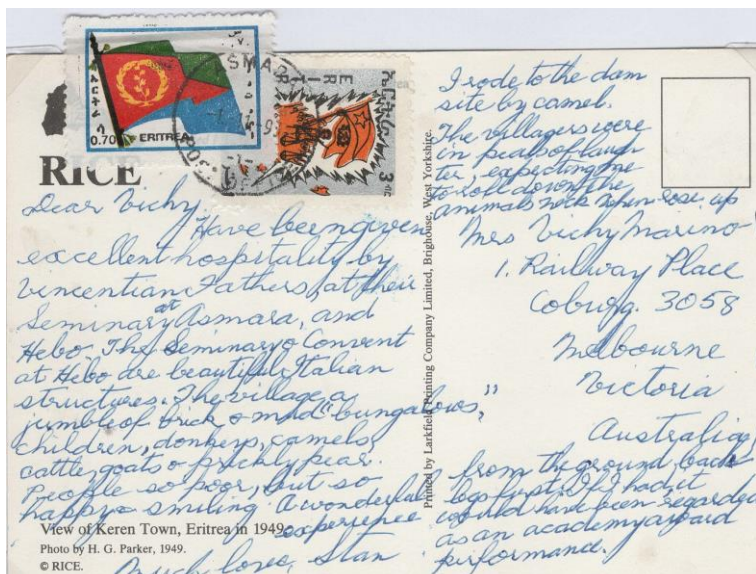 0.70
ERITREA
ERIT
R
3
RICE
Dear Vichy,
Have been given
excellent hospitality by
Vincentian Fathers, at their
Seminary at Asmara, and
Hebo. The Seminary & Convent
at Hebo are beautiful Italian
structures. The village, a
jumble of brick & mud "bungalows,"
children, donkeys, camels,
cattle, goats & prickly pear.
People so poor, but so
happy & smiling. A wonderful
experience
Much love, Stan
View of Keren Town, Eritrea in 1949.
Photo by H. G. Parker, 1949.
© RICE.
Printed by Larkfield Printing Company Limited, Brighouse, West Yorkshire.
I rode to the dam
site by camel.
The villagers were
in peals of laugh
ter, expecting me
to roll down the
animals neck when rose up
Mrs Vichy Marino
1. Railway Place
Coburg. 3058
Melbourne
Victoria
Australia
from the ground, back
legs first. If I had it
would have been regarded
as an academy award
performance.